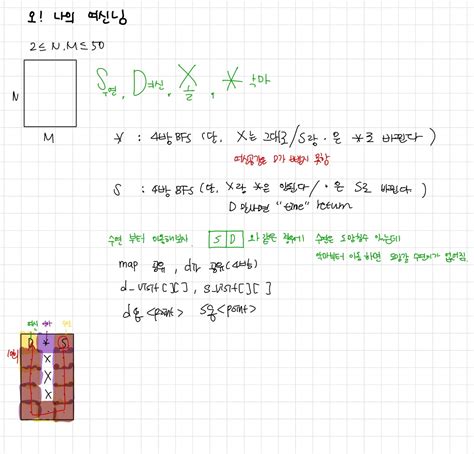 오! 나의 여신님
2 ≤ N, M ≤ 50
N
M
S수연, D여신, X돌, * 악마
* : 4방 BFS (단, X는 그대로 / S랑 · 은 *로 바뀐다)
여신공간은 D가 바뀌지 못함
S : 4방 BFS (단, X랑 *은 안된다 / · 은 S로 바뀐다)
D 만나면 "time" return
수연 부터 이동해보자. S D 와 같은 경우에 수연은 도망칠수 있는데
악마부터 이동 하면 수연이가 없어짐
map 공유, dir 공유 (4방)
d_visit[][], s_visit[][]
d큐 <point> S큐 <point>
여신
D * S
X
X
X